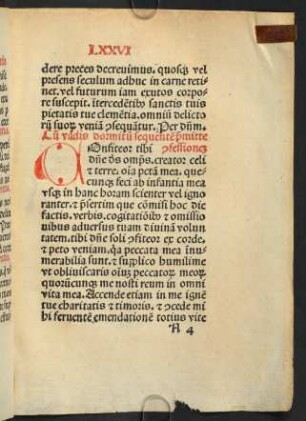 LXXVI
dere preces decreuimus. quosq; vel
presens seculum adhuc in carne reti
net. vel futurum iam exutos corpo
re suscepit. ītercedētib⁹ sanctis tuis
pietatis tue clemētia. omniū delicto
rū suoꝝ veniā ꝯsequātur. Per dūm.
Cū vadis dormitū sequentē p̄mitte
Onfiteor tibi ꝯfessionē
dn̄e de⁹ om̄ps. creator celi
⁊ terre. oīa pctā mea. que
cunqꝫ feci ab infantia mea
vsqꝫ in hanc horam scienter vel igno
ranter. ⁊ p̄sertim que cōmisi hoc die
factis. verbis. cogitatiōib⁹ ⁊ omissio
nibus aduersus tuam ⁊ diuinā volun
tatem. tibi dn̄e soli ꝯfiteor ex corde.
⁊ peto veniam. q̄a peccata mea īnu
merabilia sunt. ⁊ supplico humilime
vt obliuiscaris oīuꝫ peccatoꝝ meoꝝ.
quorūcunqꝫ me nosti reum in omni
vita mea. Accende etiam in me ignē
tue charitatis ⁊ timoris. ⁊ ꝯcede mi
hi feruentē emendationē totius vite
A 4